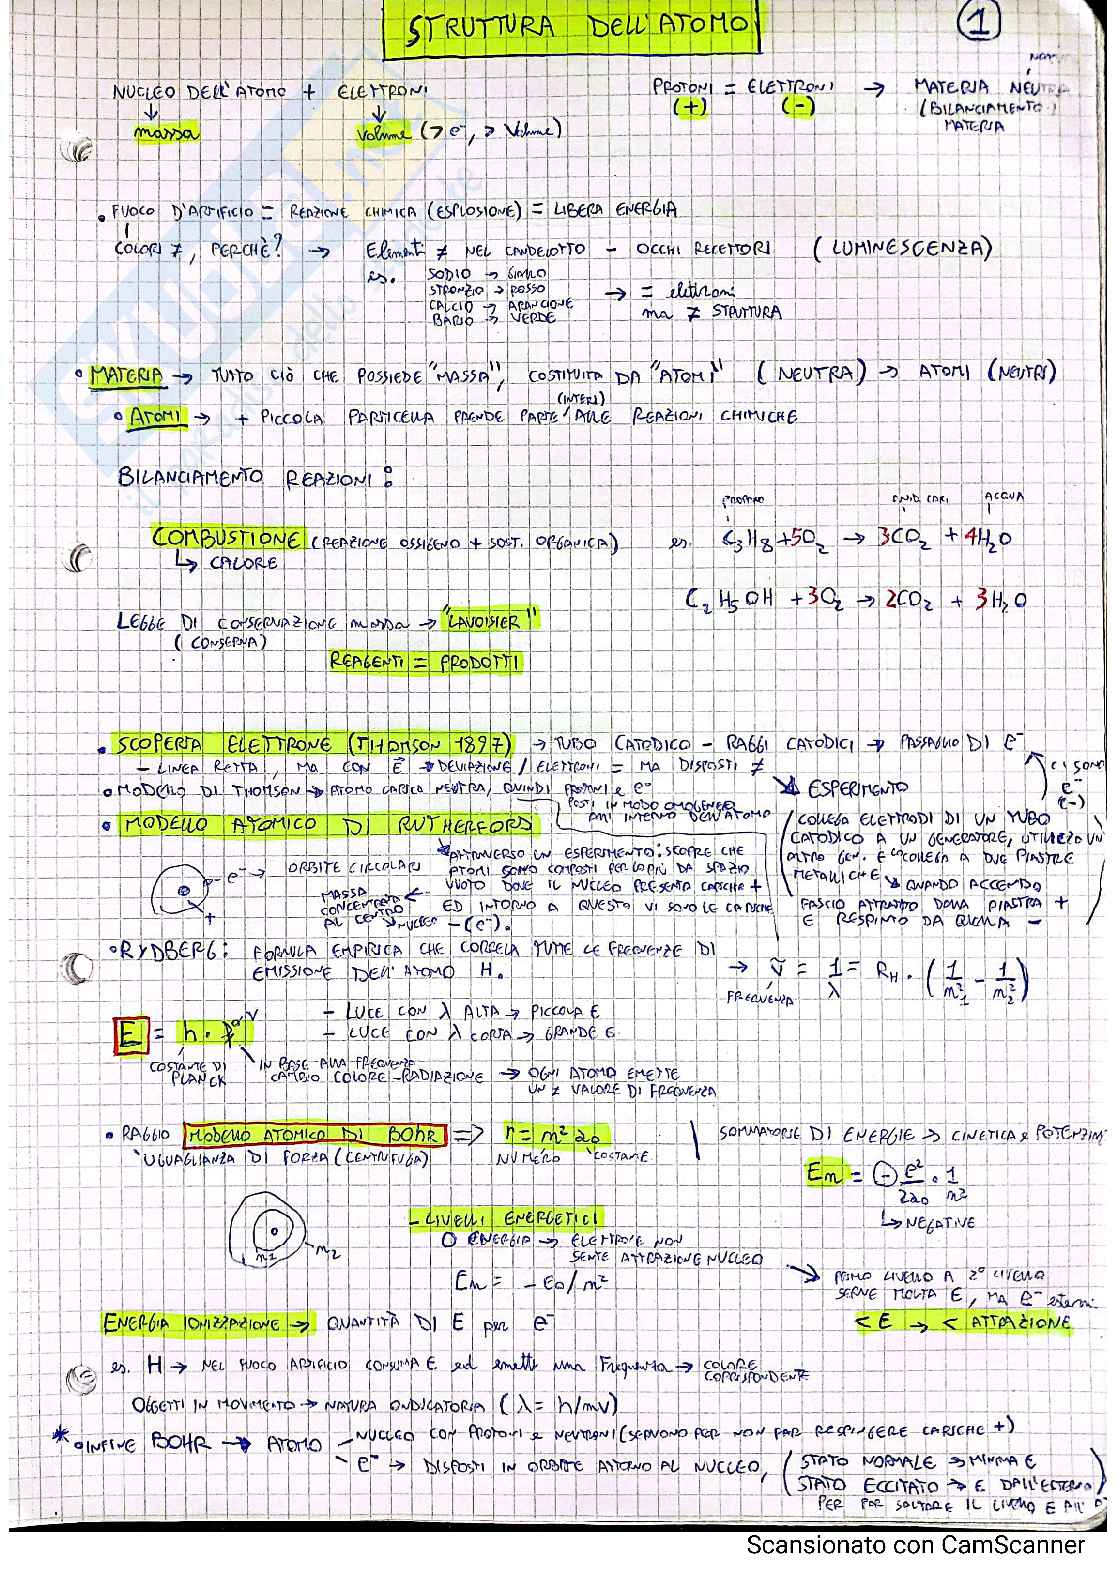 STRUTTURA DELL'ATOMO
1
NUCLEO DELL'ATOMO + ELETTRONI
PROTONI = ELETTRONI → MATERIA NEUTRA
↓ massa
↓ volume (> e⁻, > Volume)
(+) (-)
(BILANCIAMENTO
MATERIA
• FUOCO D'ARTIFICIO = REAZIONE CHIMICA (ESPLOSIONE) = LIBERA ENERGIA
COLORI ≠, PERCHÈ? → Elementi ≠ NEL CANDELOTTO - OCCHI RECETTORI (LUMINESCENZA)
es. SODIO → GIALLO
STRONZIO → ROSSO
CALCIO → ARANCIONE
BARIO → VERDE
→ = elettroni
ma ≠ STRUTTURA
• MATERIA → TUTTO CIÒ CHE POSSIEDE "MASSA", COSTITUITA DA "ATOMI" (NEUTRA) → ATOMI (NEUTRI)
(INTERI)
• ATOMI → + PICCOLA PARTICELLA PRENDE PARTE ALLE REAZIONI CHIMICHE
BILANCIAMENTO REAZIONI:
PROPANO
ACQUA
COMBUSTIONE (REAZIONE OSSIGENO + SOST. ORGANICA) es. C₃H₈ + 5O₂ → 3CO₂ + 4H₂O
↳ CALORE
C₂H₅OH + 3O₂ → 2CO₂ + 3H₂O
LEGGE DI CONSERVAZIONE massa → "LAVOISIER"
(CONSERVA)
REAGENTI = PRODOTTI
• SCOPERTA ELETTRONE (THOMSON 1897) → TUBO CATODICO - RAGGI CATODICI → PASSAGGIO DI e⁻
- LINEA RETTA, MA CON E → DEVIAZIONE / ELETTRONI = MA DISPOSTI ≠
CI SONO
e⁻
(-)
• MODELLO DI THOMSON → ATOMO CARICA NEUTRA, QUINDI PROTONI e e⁻
POSTI IN MODO OMOGENEO
ALL'INTERNO DELL'ATOMO
ESPERIMENTO
COLLEGA ELETTRODI DI UN TUBO
CATODICO A UN GENERATORE, UTILIZZO UN
ALTRO GEN. E COLLEGA A DUE PIASTRE
METALLICHE → QUANDO ACCENDO
FASCIO ATTRATTO DALLA PIASTRA +
E RESPINTO DA QUELLA -
• MODELLO ATOMICO DI RUTHERFORD
e⁻ → ORBITE CIRCOLARI
+
ATTRAVERSO UN ESPERIMENTO: SCOPRE CHE
ATOMI SONO COMPOSTI PER LO PIÙ DA SPAZIO
VUOTO DOVE IL NUCLEO PRESENTA CARICHE +
ED INTORNO A QUESTO VI SONO LE CARICHE
- (e⁻).
MASSA
CONCENTRATA
AL CENTRO
→ NUCLEO
• RYDBERG: FORMULA EMPIRICA CHE CORRELA TUTTE LE FREQUENZE DI
EMISSIONE DELL'ATOMO H.
→ ṽ = 1/λ = R_H · (1/n₁² - 1/n₂²)
FREQUENZA
E = h · f o v
- LUCE CON λ ALTA → PICCOLA E
- LUCE CON λ CORTA → GRANDE E
COSTANTE DI
PLANCK
IN BASE ALLA FREQUENZA
CAMBIO COLORE-RADIAZIONE → OGNI ATOMO EMETTE
UN ≠ VALORE DI FREQUENZA
• RAGGIO MODELLO ATOMICO DI BOHR ⇒ r = n² a₀
UGUAGLIANZA DI FORZA (CENTRIFUGA)
NUMERO COSTANTE
SOMMATORIE DI ENERGIE → CINETICA e POTENZIALE
En = - e²/2a₀ · 1/n²
↳ NEGATIVE
n1 n2
- LIVELLI ENERGETICI
0 ENERGIA → ELETTRONE NON
SENTE ATTRAZIONE NUCLEO
En = - E₀/n²
→ PRIMO LIVELLO A 2° LIVELLO
SERVE MOLTA E, MA e⁻ esterni
< E → < ATTRAZIONE
ENERGIA IONIZZAZIONE → QUANTITÀ DI E per e⁻
es. H → NEL FUOCO ARTIFICIO CONSUMA E ed emette una Frequenza → COLORE
CORRISPONDENTE
OGGETTI IN MOVIMENTO → NATURA ONDICATORIA (λ = h/mv)
* • INFINE BOHR → ATOMO - NUCLEO CON PROTONI e NEUTRONI (SERVONO PER NON FAR RESPINGERE CARICHE +)
- e⁻ → DISPOSTI IN ORBITE ATTORNO AL NUCLEO,
(STATO NORMALE → MINIMA E
STATO ECCITATO → E DALL'ESTERNO)
PER FAR SALTARE IL LIVELLO E
Scansionato con CamScanner